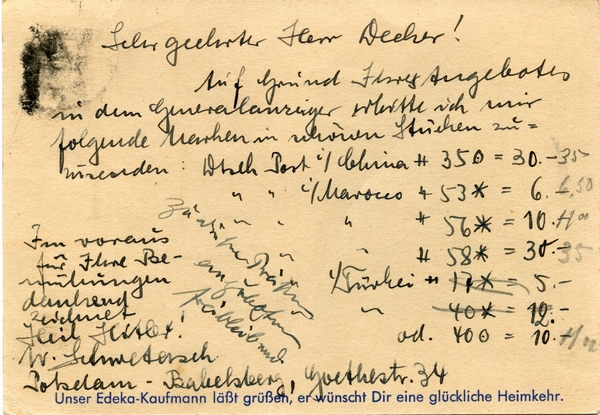 Sehr geehrter Herr Decker!
Auf Grund Ihres Angebotes
in dem Generalanzeiger erbitte ich mir
folgende Marken in schönen Stücken zu=
zusenden: Dtsch Post i/China # 35⊙ = 30.- 35
" " i/Marocco # 53* = 6.- 6,50
" " " # 56* = 10.-
" " # 58* = 30.- 35
i/Türkei # 17* = 5.-
" 40* = 12.-
od. 40⊙ = 10.
Im voraus
für Ihre Be-
mühungen
dankend
zeichnet
Heil Hitler!
Potsdam - Babelsberg, Goethestr. 34
Unser Edeka-Kaufmann läßt grüßen, er wünscht Dir eine glückliche Heimkehr.